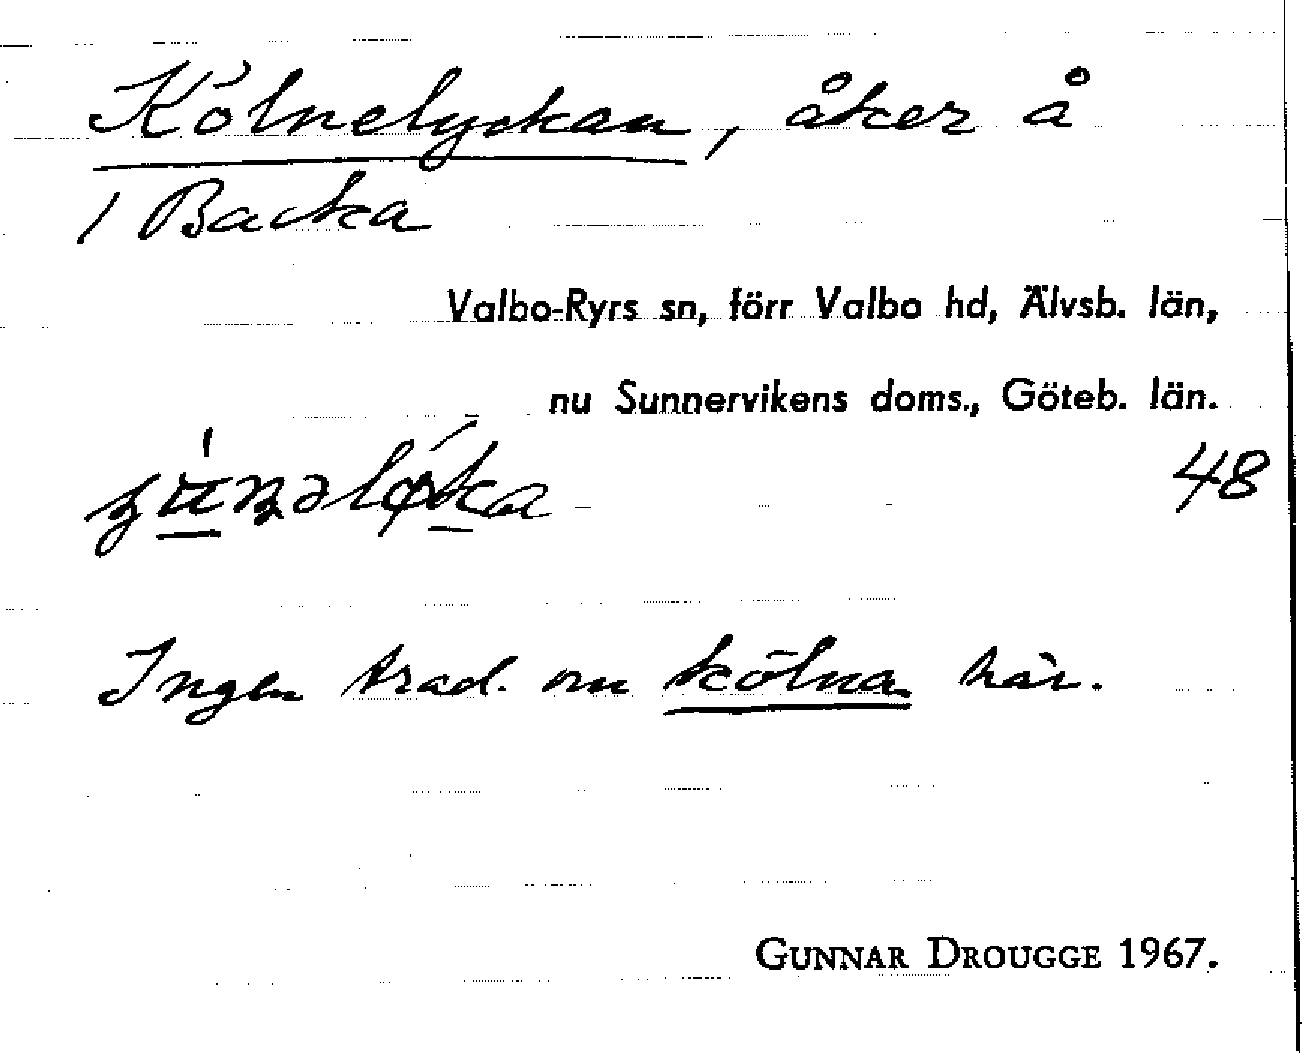 Kölnelyckan, åker å
/ Backa
Valbo-Ryrs sn, förr Valbo hd, Älvsb. län,
nu Sunnervikens doms., Göteb. län.
48
Ingen trad. om kölna här.
GUNNAR DROUGGE 1967.